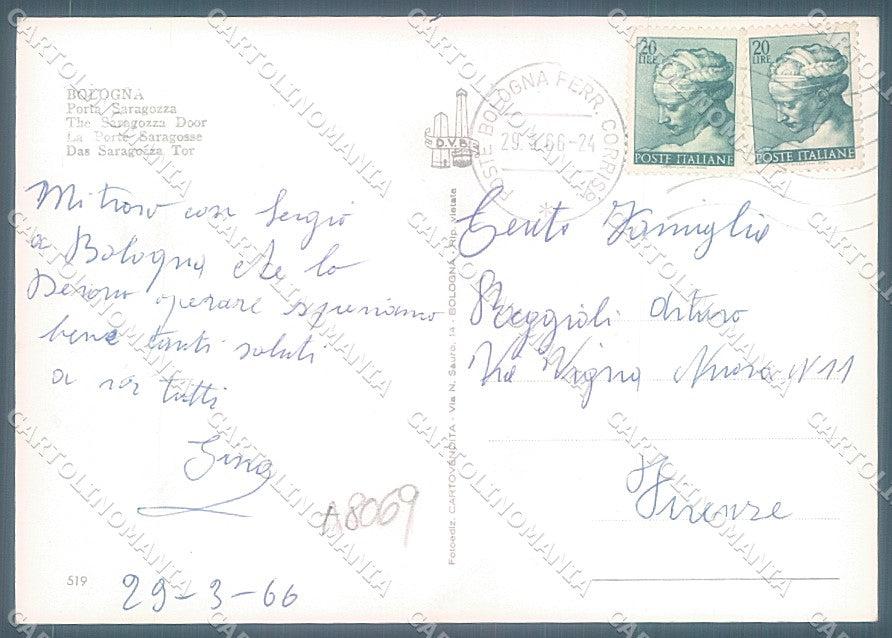 BOLOGNA
Porta Saragozza
The Saragozza Door
La Porte Saragosse
Das Saragozza Tor
Mi trovo con Sergio
a Bologna che lo
devono operare speriamo
bene tanti saluti
a voi tutti
Gino
A8069
519
29-3-66
D.V.B.
Fotoediz. CARTOVENDITA - Via N. Sauro, 1a - BOLOGNA - Rip. vietata
POSTE BOLOGNA FERR. CORRISP.
29.3.66-24
20
LIRE
POSTE ITALIANE
20
LIRE
POSTE ITALIANE
Famiglia
Reggioli Arturo
Via Vigna Nuova N 11
Firenze
CARTOLINOMANIA